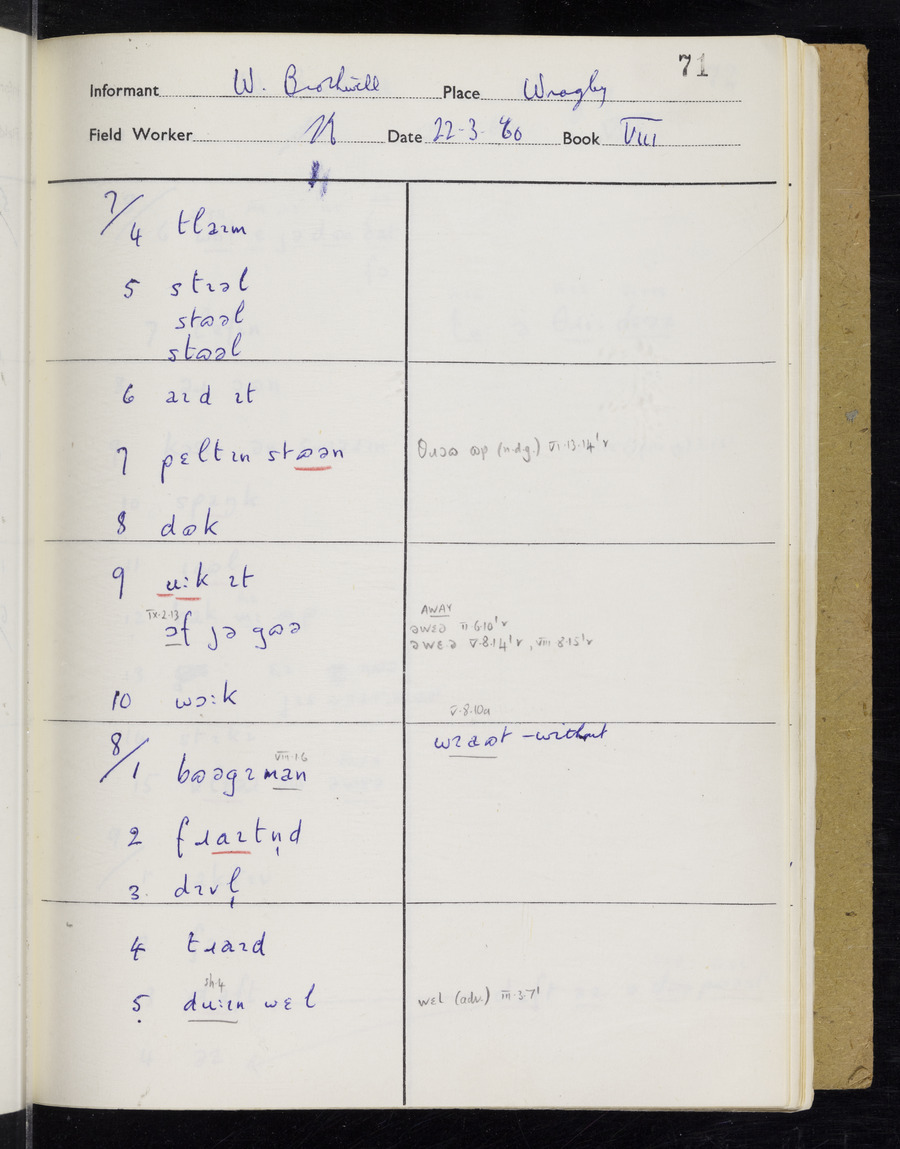 71
Informant W. Brothwell Place Wragby
Field Worker Date 22-3-60 Book VIII
7/4 tlaɪm
5 stɪəl
stʊəl
stʊəl
6 aɪd ɪt
7 pɛltɪn stʊən θɹəʊ ʊp (n.dg.) VI.13.14'v
8 dʊk
9 u:k ɪt
AWAY
IX.2.13
ɔf jə gʊə əwɛə II.6.10'v
əwɛə V.8.14'v, VIII 8.15'v
10 wɔ:k V.8.10a
8/1 bʊəgɪman VIII.1.6 wɪaʊt - without
2 fɹaɪtn̩d
3 dɪvl̩
4 tɹaɪd
sh.4
5 du:ɪn wɛl wɛl (adv.) III.3.7'